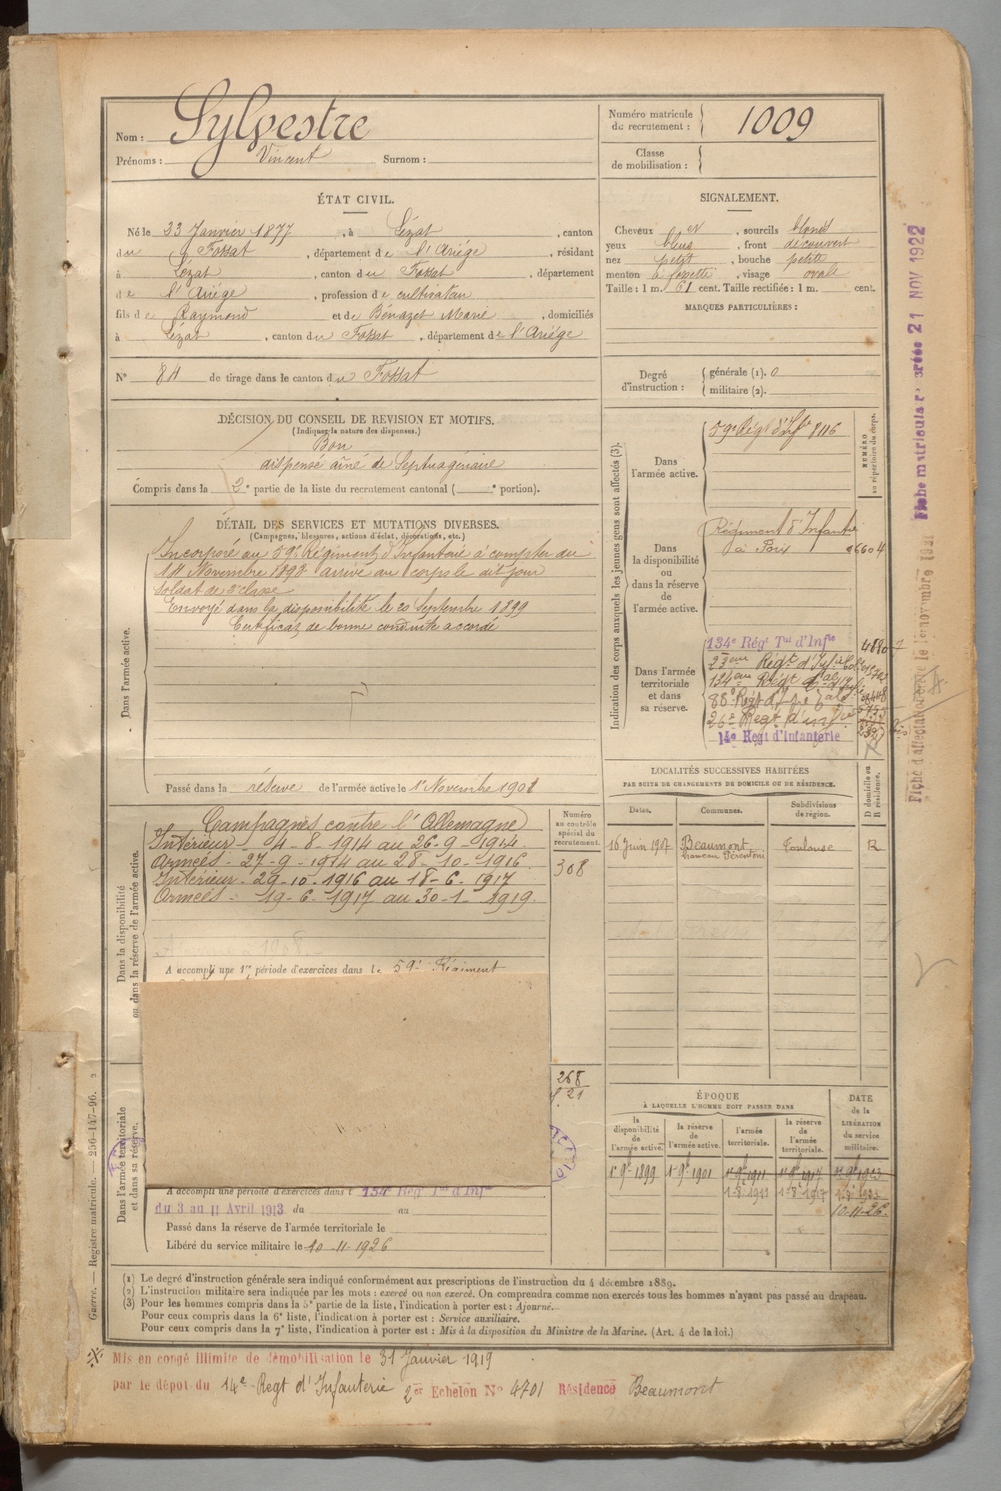 Nom : Sylvestre
Prénoms : Vincent Surnom :
Numéro matricule de recrutement : 1009
Classe de mobilisation :
ÉTAT CIVIL.
Né le 23 Janvier 1877, à Lézat, canton
du Fossat, département de l'Ariége, résidant
à Lézat, canton du Fossat, département
de l'Ariége, profession de cultivateur
fils de Raymond et de Bénazet Marie, domiciliés
à Lézat, canton du Fossat, département de l'Ariége
N° 84 de tirage dans le canton du Fossat
SIGNALEMENT.
Cheveux et, sourcils blonds
yeux bleus, front découvert
nez petit, bouche petite
menton à fossette, visage ovale
Taille : 1 m. 61 cent. Taille rectifiée : 1 m. cent.
MARQUES PARTICULIÈRES :
Degré d'instruction : générale (1). 0
militaire (2).
DÉCISION DU CONSEIL DE REVISION ET MOTIFS.
(Indiquer la nature des dispenses.)
Bon
dispensé aîné de Septuagénaire
Compris dans la 2e partie de la liste du recrutement cantonal ( e portion).
DÉTAIL DES SERVICES ET MUTATIONS DIVERSES.
(Campagnes, blessures, actions d'éclat, décorations, etc.)
Dans l'armée active.
Incorporé au 59e Régiment d'Infanterie à compter du
14 Novembre 1898 arrivé au corps le dit jour
Soldat de 2e classe
Envoyé dans la disponibilité le 20 Septembre 1899
Certificat de bonne conduite accordé
Passé dans la réserve de l'armée active le 1er Novembre 1901
Indication des corps auxquels les jeunes gens sont affectés (3).
NUMÉRO au répertoire du corps.
Dans l'armée active.
59e Régt d'Infie 8116
Dans la disponibilité ou dans la réserve de l'armée active.
Régiment d'Infantie
à Foix 06604
Dans l'armée territoriale et dans sa réserve.
134e Régt Tal d'Infie
134e Régt
14e Regt d'Infanterie
LOCALITÉS SUCCESSIVES HABITÉES
PAR SUITE DE CHANGEMENTS DE DOMICILE OU DE RÉSIDENCE.
D domicile ou R résidence.
Dates. Communes. Subdivisions de région.
16 Juin 1907 Beaumont Toulouse R
Dans la disponibilité ou dans la réserve de l'armée active.
Numéro au contrôle spécial du recrutement.
308
Campagnes contre l'Allemagne
Intérieur - 4-8-1914 au 26-9-1914
Armées - 27-9-1914 au 28-10-1916
Intérieur - 29-10-1916 au 18-6-1917
Armées - 19-6-1917 au 30-1-1919.
A accompli une 1re période d'exercices dans le 59e Régiment
268
Dans l'armée territoriale et dans sa réserve.
A accompli une période d'exercices dans l 134e Rég Tal d'Infie
du 3 au 11 Avril 1913 du au
Passé dans la réserve de l'armée territoriale le
Libéré du service militaire le 10-11-1926
ÉPOQUE
À LAQUELLE L'HOMME DOIT PASSER DANS
DATE de la LIBÉRATION du service militaire.
la disponibilité de l'armée active. la réserve de l'armée active. l'armée territoriale. la réserve de l'armée territoriale.
1er 9bre 1899 1er 9bre 1901 1er 9bre 1911 1er 9bre 1917 1er 9bre 1923
10-11-26.
(1) Le degré d'instruction générale sera indiqué conformément aux prescriptions de l'instruction du 4 décembre 1889.
(2) L'instruction militaire sera indiquée par les mots : exercé ou non exercé. On comprendra comme non exercés tous les hommes n'ayant pas passé au drapeau.
(3) Pour les hommes compris dans la 5e partie de la liste, l'indication à porter est : Ajourné.
Pour ceux compris dans la 6e liste, l'indication à porter est : Service auxiliaire.
Pour ceux compris dans la 7e liste, l'indication à porter est : Mis à la disposition du Ministre de la Marine. (Art. 4 de la loi.)
Mis en congé illimité de démobilisation le 31 Janvier 1919
par le dépot du 14e Regt d'Infanterie 2er Echelon N° 4701 Résidence Beaumont
Guerre. — Registre matricule. — 256-147-96.
21 NOV 1922